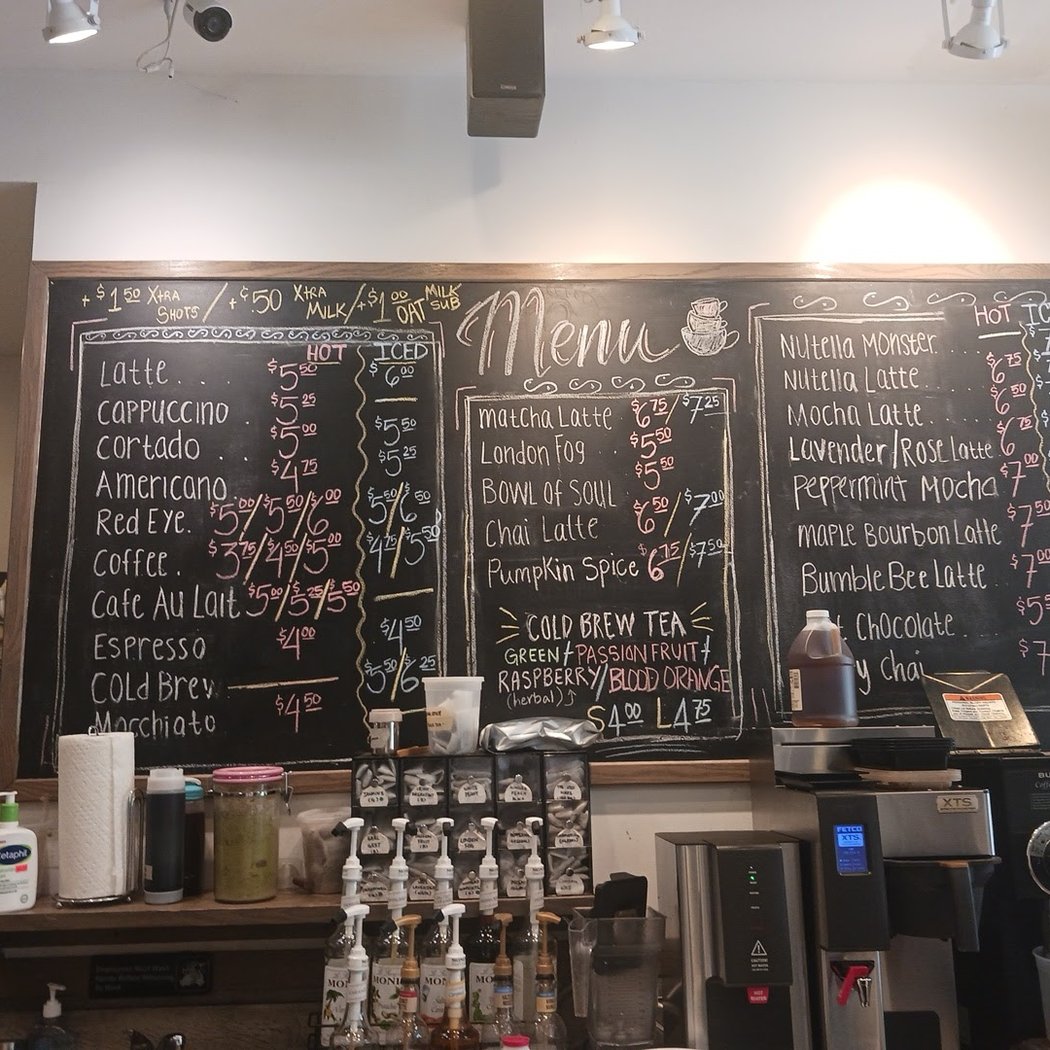 + $1.50 Xtra Shots / +$.50 Xtra Milk / +$1.00 Oat Milk Sub
HOT ICED
Latte . . . . $5.50 $6.00
Cappuccino . $5.25 —
Cortado . . $5.00 $5.50
Americano $4.75 $5.25
Red Eye. $5.00/$5.50/$6.00 $5.50/$6.50
Coffee . $3.75/$4.50/$5.00 $4.75/$5.50
Cafe Au Lait $5.00/$5.25/$5.50 —
Espresso $4.00 $4.50
Cold Brew — $5.50/$6.25
Macchiato $4.50
Menu
Matcha Latte $6.75/$7.25
London Fog $5.50
Bowl of Soul $5.50
Chai Latte $6.50/$7.00
Pumpkin Spice $6.75/$7.50
COLD BREW TEA
GREEN + PASSIONFRUIT +
RASPBERRY/BLOOD ORANGE
(herbal)
S $4.00 L $4.75
HOT IC
Nutella Monster. . . . $6.75
Nutella Latte. . . . $6.50
Mocha Latte. . . . $6.75
Lavender/Rose Latte $7.00
Peppermint Mocha $7.50
Maple Bourbon Latte $7.00
Bumble Bee Latte . $5.5
t Chocolate. $7
y Chai
etaphil
FETCO
XTS
XTS
BU
WARNING
CAUTION!
HOT WATER
MONI